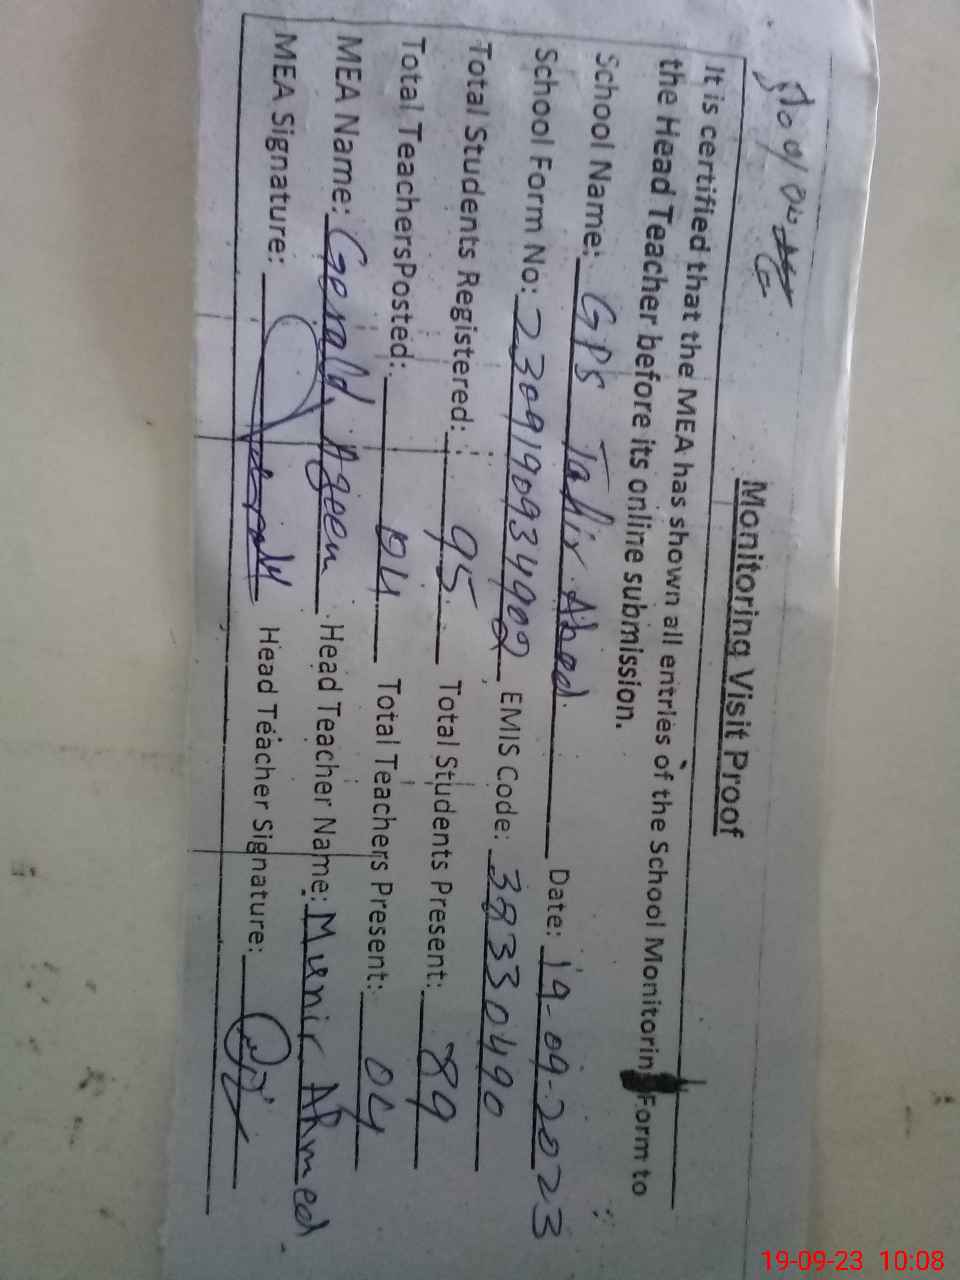 Monitoring Visit Proof
It is certified that the MEA has shown all entries of the School Monitoring Form to
the Head Teacher before its online submission.
School Name: GPS Tahir Abad. Date: 19-09-2023
School Form No: 230919093490 EMIS Code: 38330490
Total Students Registered: 95 Total Students Present: 89
Total TeachersPosted: 04 Total Teachers Present: 04
MEA Name: Gerald Ageen Head Teacher Name: Munir AHmed
MEA Signature: Head Teacher Signature:
19-09-23 10:08